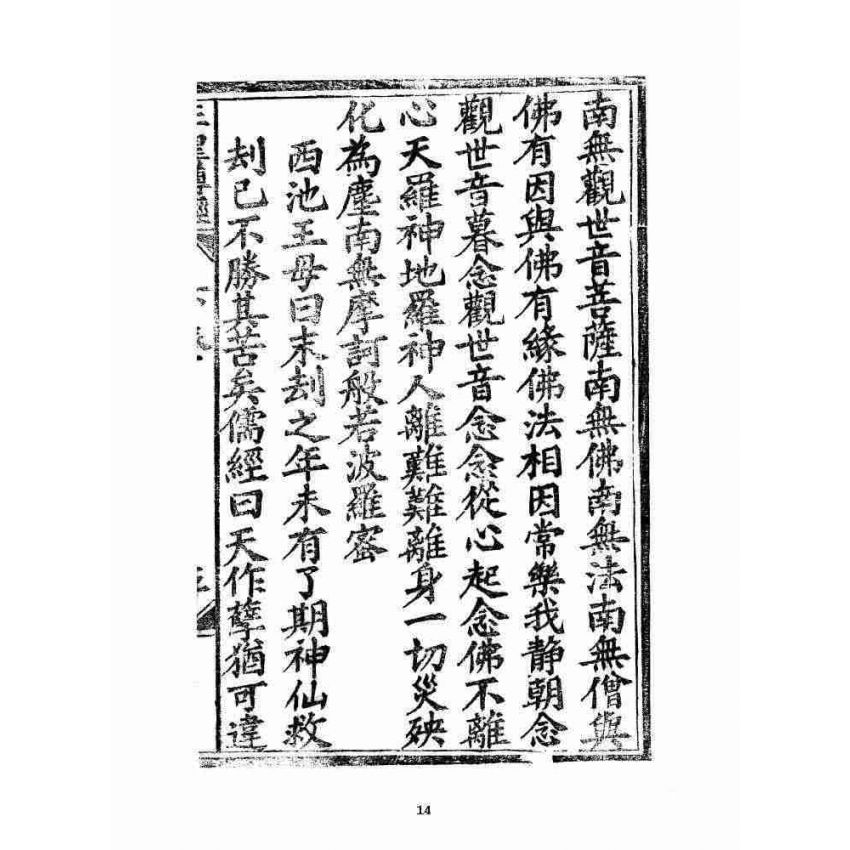 南無觀世音菩薩南無佛南無法南無僧與
佛有因與佛有緣佛法相因常樂我静朝念
觀世音暮念觀世音念念從心起念佛不離
心天羅神地羅神人離難難離身一切災殃
化為塵南無摩訶般若波羅密
西池王母曰末刦之年未有了期神仙救
刦已不勝其苦矣儒經曰天作孽猶可違
14